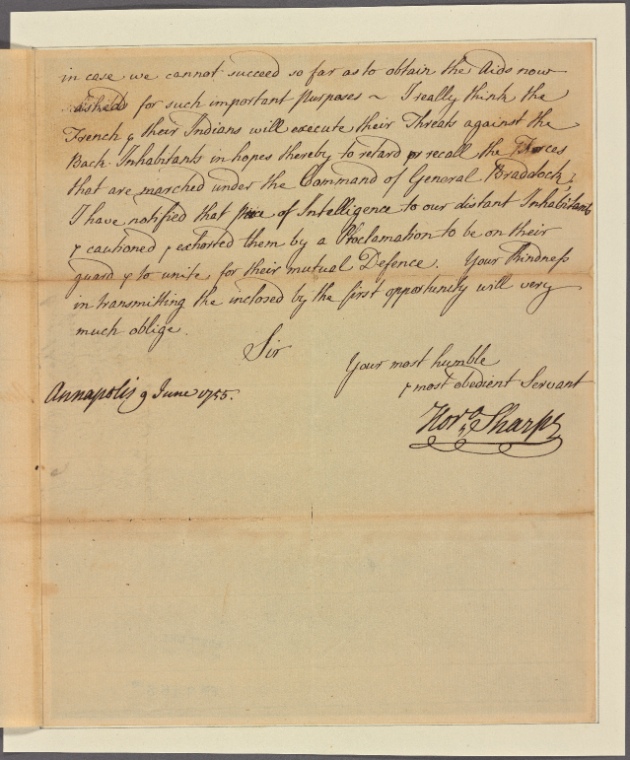 in case we cannot succeed so far as to obtain the Aids now
for such important Purposes ~ I really think the
French & their Indians will execute their Threats against the
Back Inhabitants in hopes thereby to retard or recall the Forces
that are marched under the Command of General Braddock;
I have notified that piece of Intelligence to our distant Inhabitants
& cautioned & exhorted them by a Proclamation to be on their
guard & to unite for their mutual Defence. Your Kindness
in transmitting the inclosed by the first opportunity will very
much oblige.
Sir
Your most humble
& most obedient Servant
Annapolis 9 June 1755.
Horo. Sharpe